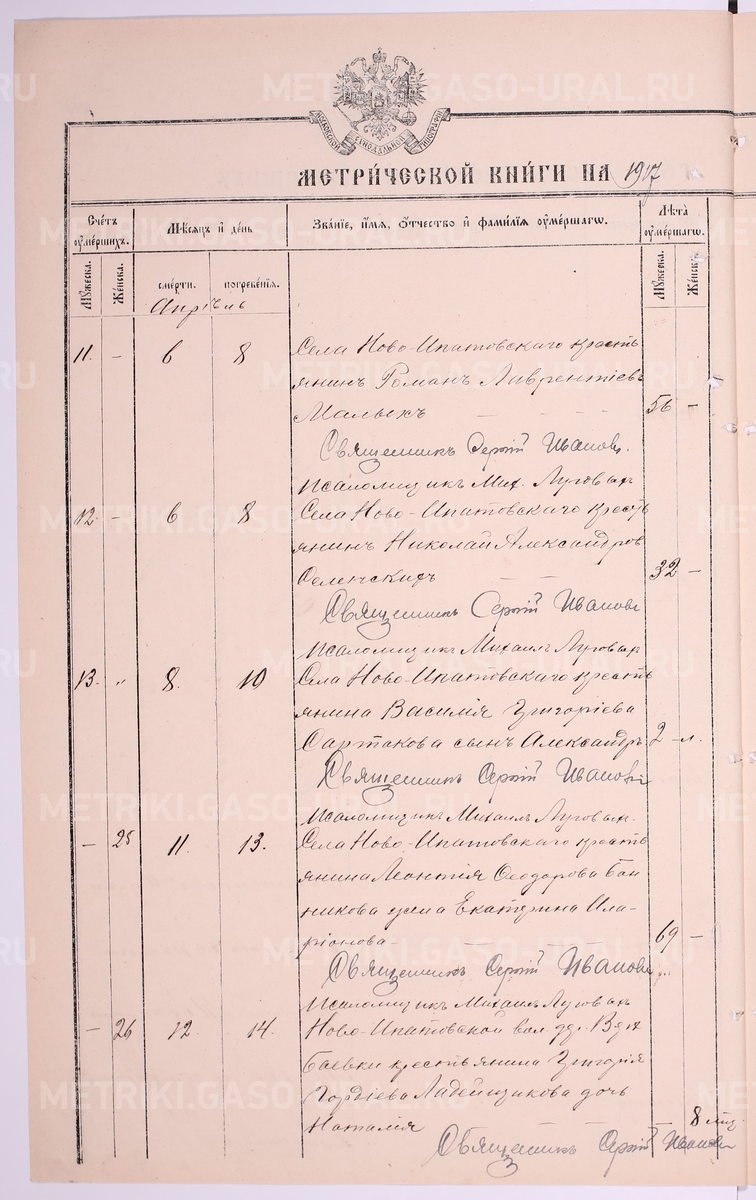 МОСКОВСКОЙ СѶНОДАЛЬНОЙ ТИПОГРАФІИ
МЕТРИ́ЧЕСКОЙ КНИ́ГИ НА 1917
Счетъ оумершихъ. Мѣсяцъ и день Зва́ніе, и́мя, о́тчество и фами́лія оуме́ршагѡ. Лѣта оуме́ршагѡ.
Мужеска. Женска. смерти. погребенія. Мужеска. Женска.
Апрѣль
11. - 6 8 Села Ново-Ипатовскаго кресть
янинъ Романъ Лаврентіевъ
Малыхъ - - - 56 -
Священникъ Сергій Ивановъ.
Псаломщикъ Мих. Луговыхъ
12. - 6 8 Села Ново-Ипатовскаго кресть
янинъ Николай Александров
Селенскихъ - - 32 -
Священникъ Сергій Ивановъ
Псаломщикъ Михаилъ Луговыхъ
13. " 8. 10 Села Ново-Ипатовскаго кресть
янина Василія Григоріева
Сартакова сынъ Александръ 2 - л.
Священникъ Сергій Ивановъ
Псаломщикъ Михаилъ Луговыхъ.
- 25 11. 13. Села Ново-Ипатовскаго кресть
янина Леонтія Ѳеодорова Бан
никова жена Екатерина Ила-
ріонова - - 69 -
Священникъ Сергій Ивановъ
Псаломщикъ Михаилъ Луговыхъ
- 26 12. 14. Ново-Ипатовской вол. дер.
баевки крестьянина Григорія
Гордіева Ладейщикова дочь
Наталія - - - 8 мѣс.
Священникъ Сергій Ивановъ
METRIKI.GASO-URAL.RU